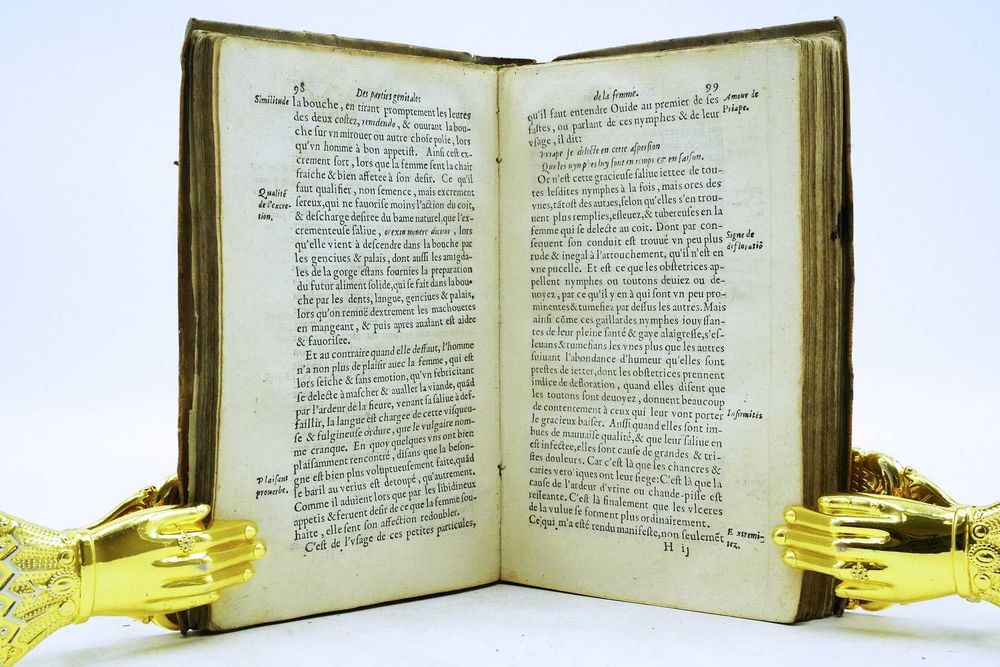 98
Des parties genitales
Similitude
la bouche, en tirant promptement les leures
des deux costez, remdendo, & ouurant la bou-
che sur vn mirouer ou autre chose polie, lors
qu'vn homme à bon appetist. Ainsi cest ex-
crement sort, lors que la femme sent la chair
fraiche & bien affetee à son desir. Ce qu'il
Qualité
de l'excre-
tion.
faut qualifier, non semence, mais excrement
sereux, qui ne fauorise moins l'action du coit,
& descharge desiree du bame naturel, que l'ex-
crementeuse saliue, lors
qu'elle vient à descendre dans la bouche par
les genciues & palais, dont aussi les amigda-
les de la gorge estans fournies la preparation
du futur aliment solide, qui se fait dans la bou-
che par les dents, langue, genciues & palais,
lors qu'on remuë dextrement les machoueres
en mangeant, & puis apres aualant est aidee
& fauorisee.
Et au contraire quand elle deffaut, l'homme
n'a non plus de plaisir auec la femme, qui est
lors seiche & sans emotion, qu'vn febricitant
se delecte à mascher & aualler la viande, quād
par l'ardeur de la fieure, venant sa saliue à def-
faillir, la langue est chargee de cette visqueu-
se & fulgineuse ordure, que le vulgaire nom-
me cranque. En quoy quelques vns ont bien
plaisamment rencontré, disans que la beson-
Plaisant
prouerbe.
gne est bien plus voluptueusement faite, quād
le baril au verius est detoupé, qu'autrement.
Comme il aduient lors que par les libidineux
appetis & ferueur desir de ce que la femme sou-
haite, elle sent son affection redoubler.
C'est de l'vsage de ces petites particules,
99
de la femme.
qu'il faut entendre Ouide au premier de ses
Amour de
Priape.
fastes, ou parlant de ces nymphes & de leur
vsage, il dit:
Priape se delecte en cette aspersion
Que les nymphes luy font en temps & en saison.
Or n'est cette gracieuse saliue iettee de tou-
tes lesdites nymphes à la fois, mais ores des
vnes, tātost des autres, selon qu'elles s'en trou-
uent plus remplies, esleuez, & tubereuses en la
femme qui se delecte au coit. Dont par con-
Signe de
defloratiō
sequent son conduit est trouué vn peu plus
rude & inegal à l'attouchement, qu'il n'est en
vne pucelle. Et est ce que les obstetrices ap-
pellent nymphes ou toutons deuiez ou de-
uoyez, par ce qu'il y en à qui sont vn peu pro-
minentes & tumefiez par dessus les autres. Mais
ainsi cōme ces gaillardes nymphes iouyssan-
tes de leur pleine santé & gaye alaigresse, s'es-
leuans & tumefians les vnes plus que les autres
suiuant l'abondance d'humeur qu'elles sont
prestes de ietter, dont les obstetrices prennent
indice de defloration, quand elles disent que
les toutons sont deuoyez, donnent beaucoup
de contentement à ceux qui leur vont porter
Infirmités
le gracieux baiser. Aussi quand elles sont im-
bues de mauuaise qualité, & que leur saliue en
est infectee, elles sont cause de grandes & tri-
stes douleurs. Car c'est là que les chancres &
caries veroliques ont leur siege: C'est là que la
cause de l'ardeur d'vrine ou chaude-pisse est
resseante. C'est là finalement que les vlceres
de la vulue se forment plus ordinairement.
Ce qui m'a esté rendu manifeste, non seulemēt
H ij